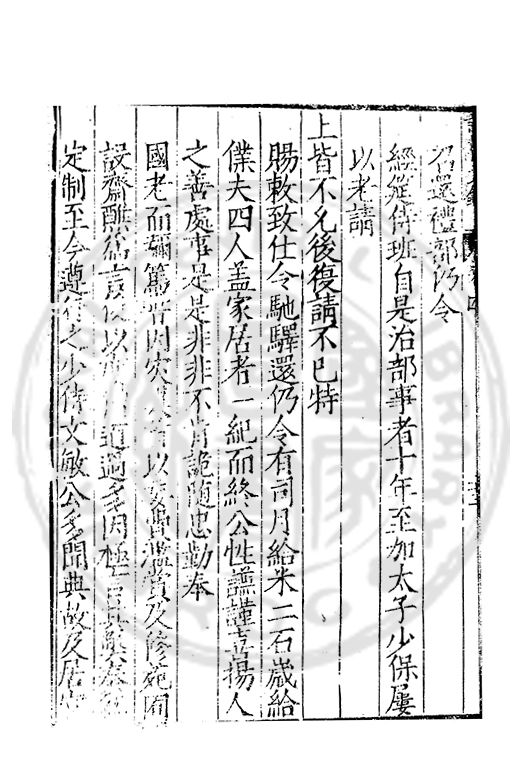 召還禮部仍令
經筵侍班自是治部事者十年至加太子少保屢
以老請
上皆不允後復請不已特
賜敕致仕令馳驛還仍令有司月給米二石歲給
僕夫四人蓋家居者一紀而終公性謹喜揚人
之善處事是是非非不肯詭隨忠勤奉
國老而彌篤嘗因災以妄費濫賞及修苑囿
設齋醮為言過多因極
定制至今遵行之少侍文敏公多聞典故及居